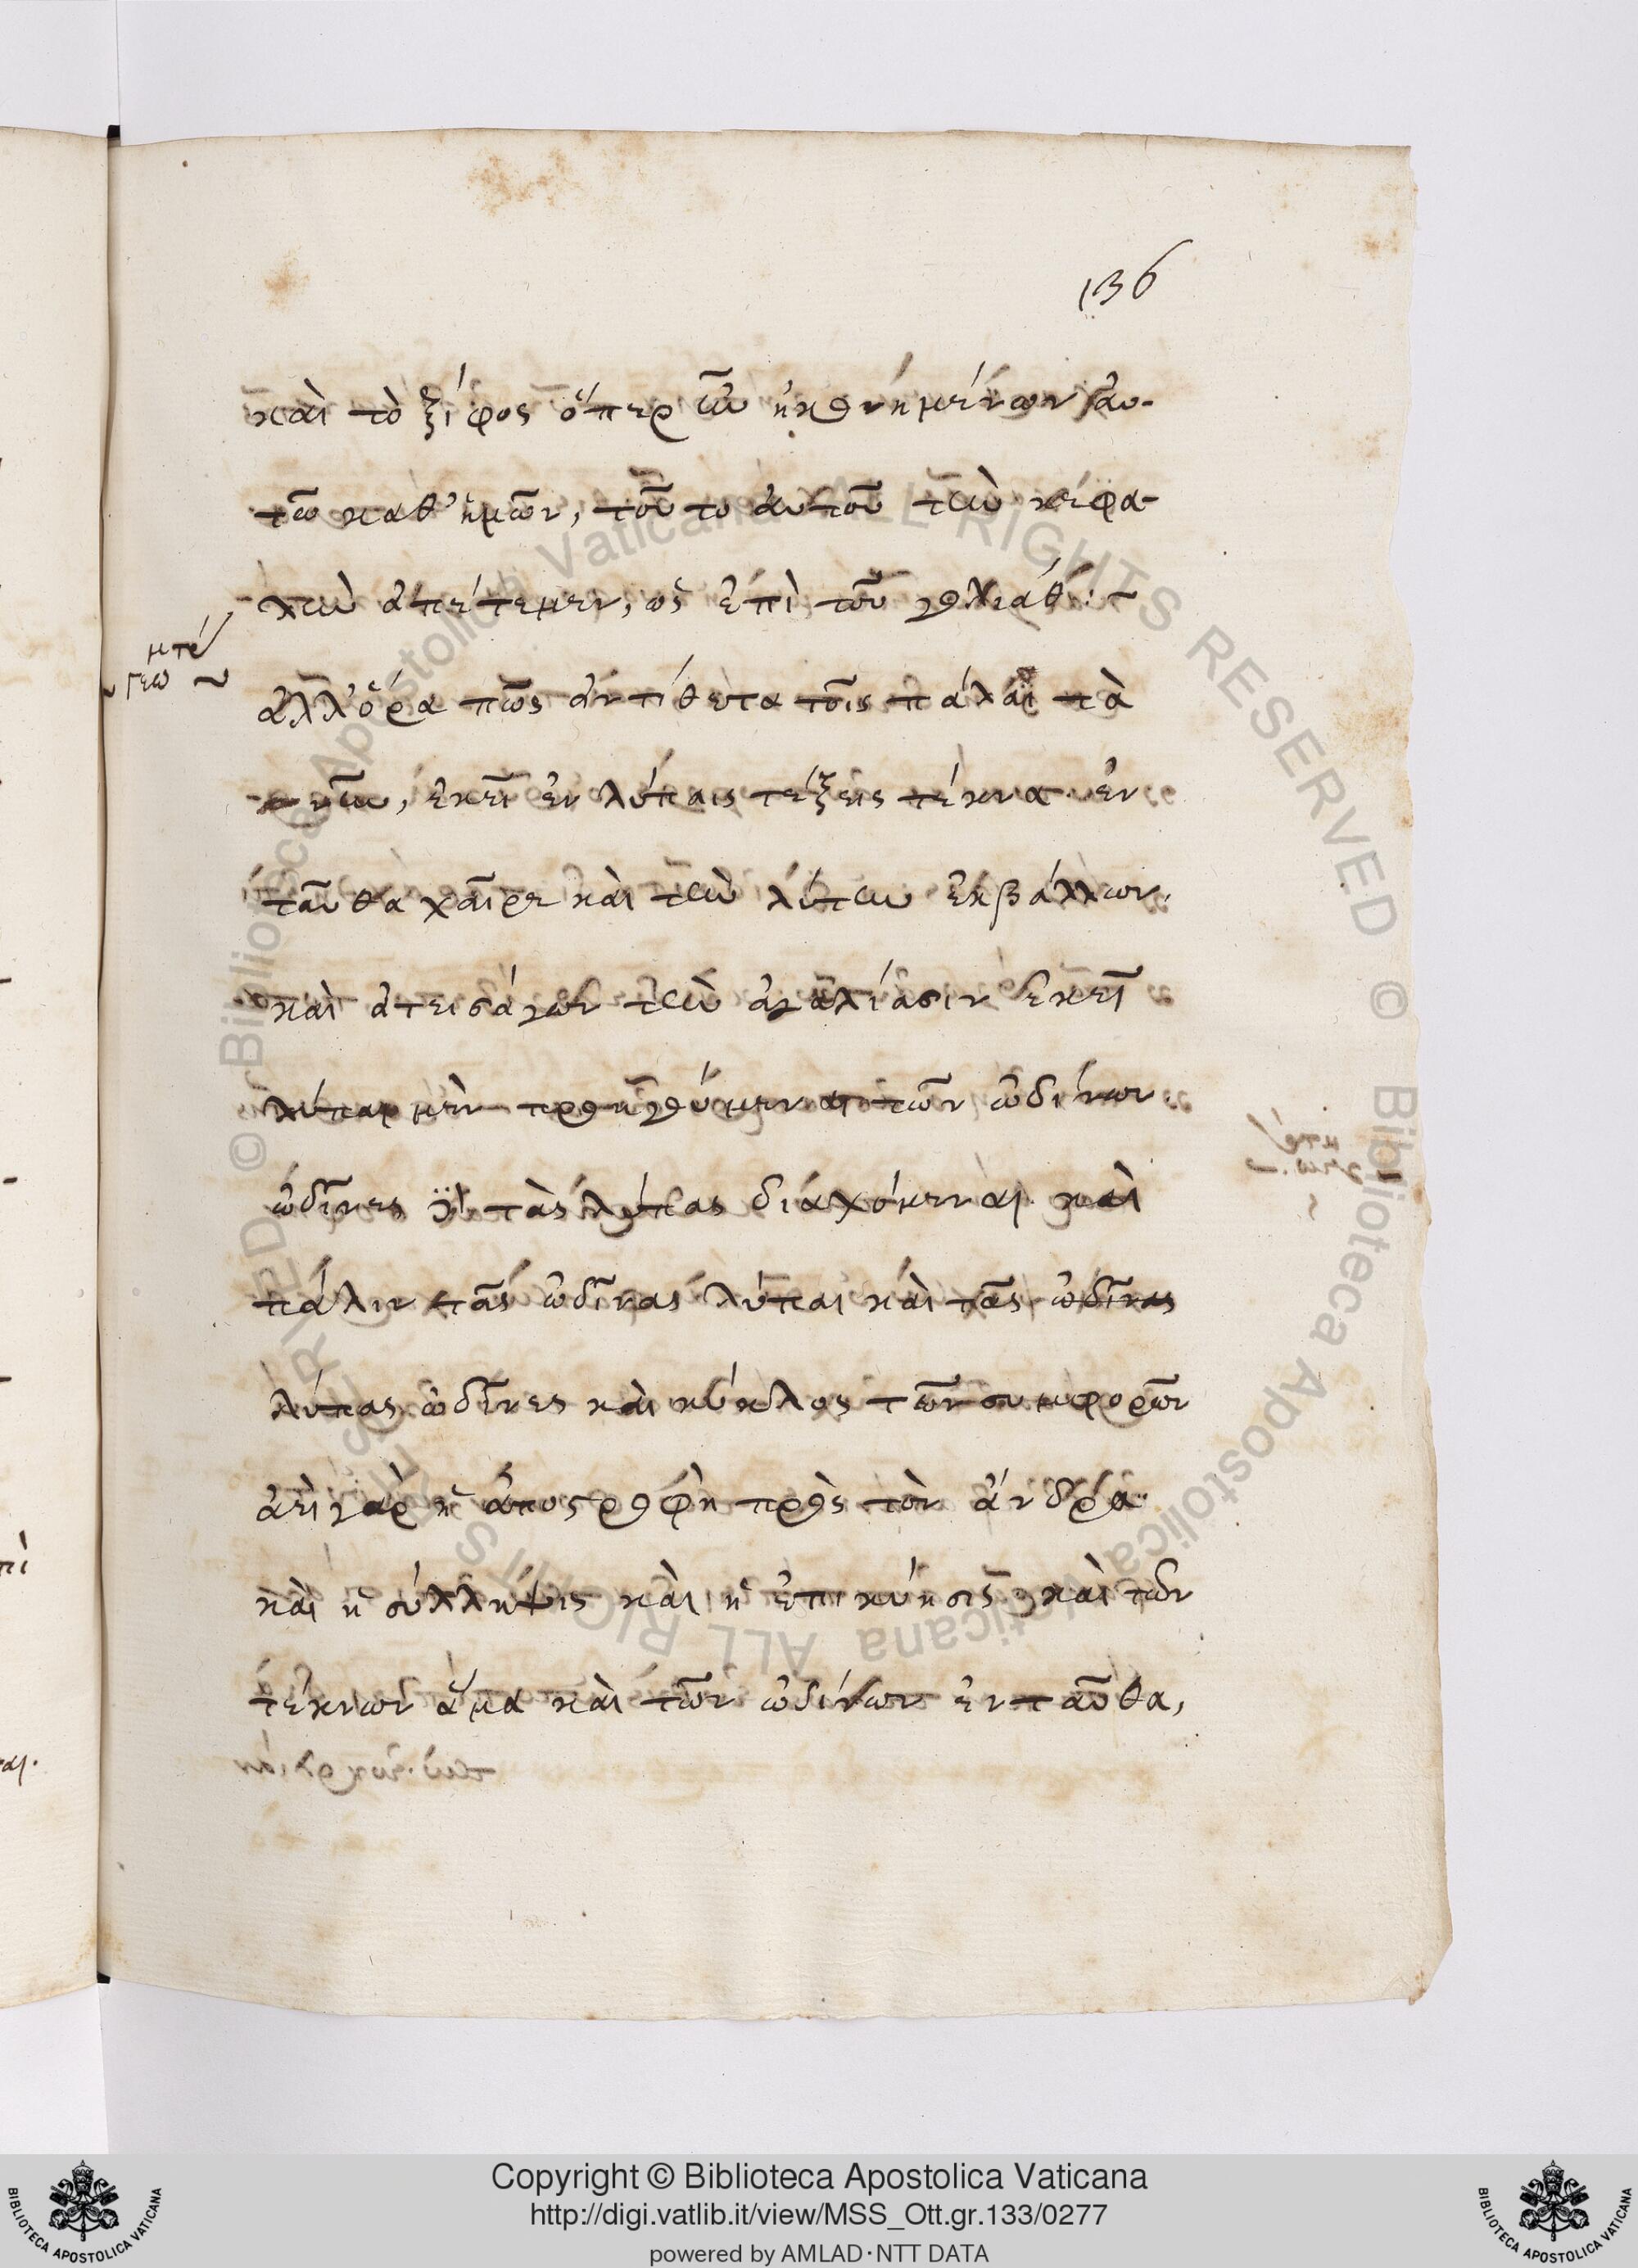 136
καὶ τὸ ξίφος ὅπερ ἦν ἠκονημένον αυ-
τῶ καθ' ἡμῶν, τοῦτο αυτοῦ τὴν κεφα-
λὴν ἀπέτεμεν, ὡς ἐπὶ τοῦ γολιάθ:~
ἀλλ' ὅρα πῶς ἀντίθετα τοῖς πάλαι τὰ
νῦν, ἐκεῖ ἐν λύπαις τέξεις τέκνα ἐν
ταῦθα χαῖρε καὶ τὴν λύπην ἐκβάλλων,
καὶ ἀτεισάγων τὴν ἀγαλίασιν ἐκεῖ
λύπαι μὲν προηγούμεναι τῶν ὠδίνων
ὠδῖνες τὰς λύπας διαχόμεναι καὶ
πάλιν τὰς ὠδῖνας λύπαι καὶ τὰς ὠδῖνας
λύπας ὠδῖνες καὶ κύκλος τῶν συμφορῶν
ἀεὶ γὰρ ἡ ἀποστροφὴ πρὸς τὸν ἄνδρα
καὶ ἡ σύλληψις καὶ ἡ ἐπικύησις καὶ τῶν
τέκνων ἅμα καὶ τῶν ὠδίνων ἐνταῦθα,
Copyright © Biblioteca Apostolica Vaticana
http://digi.vatlib.it/view/MSS_Ott.gr.133/0277
powered by AMLAD·NTT DATA
BIBLIOTECA APOSTOLICA VATICANA
BIBLIOTECA APOSTOLICA VATICANA
© Biblioteca Apostolica Vaticana ALL RIGHTS RESERVED
© Biblioteca Apostolica Vaticana ALL RIGHTS RESERVED